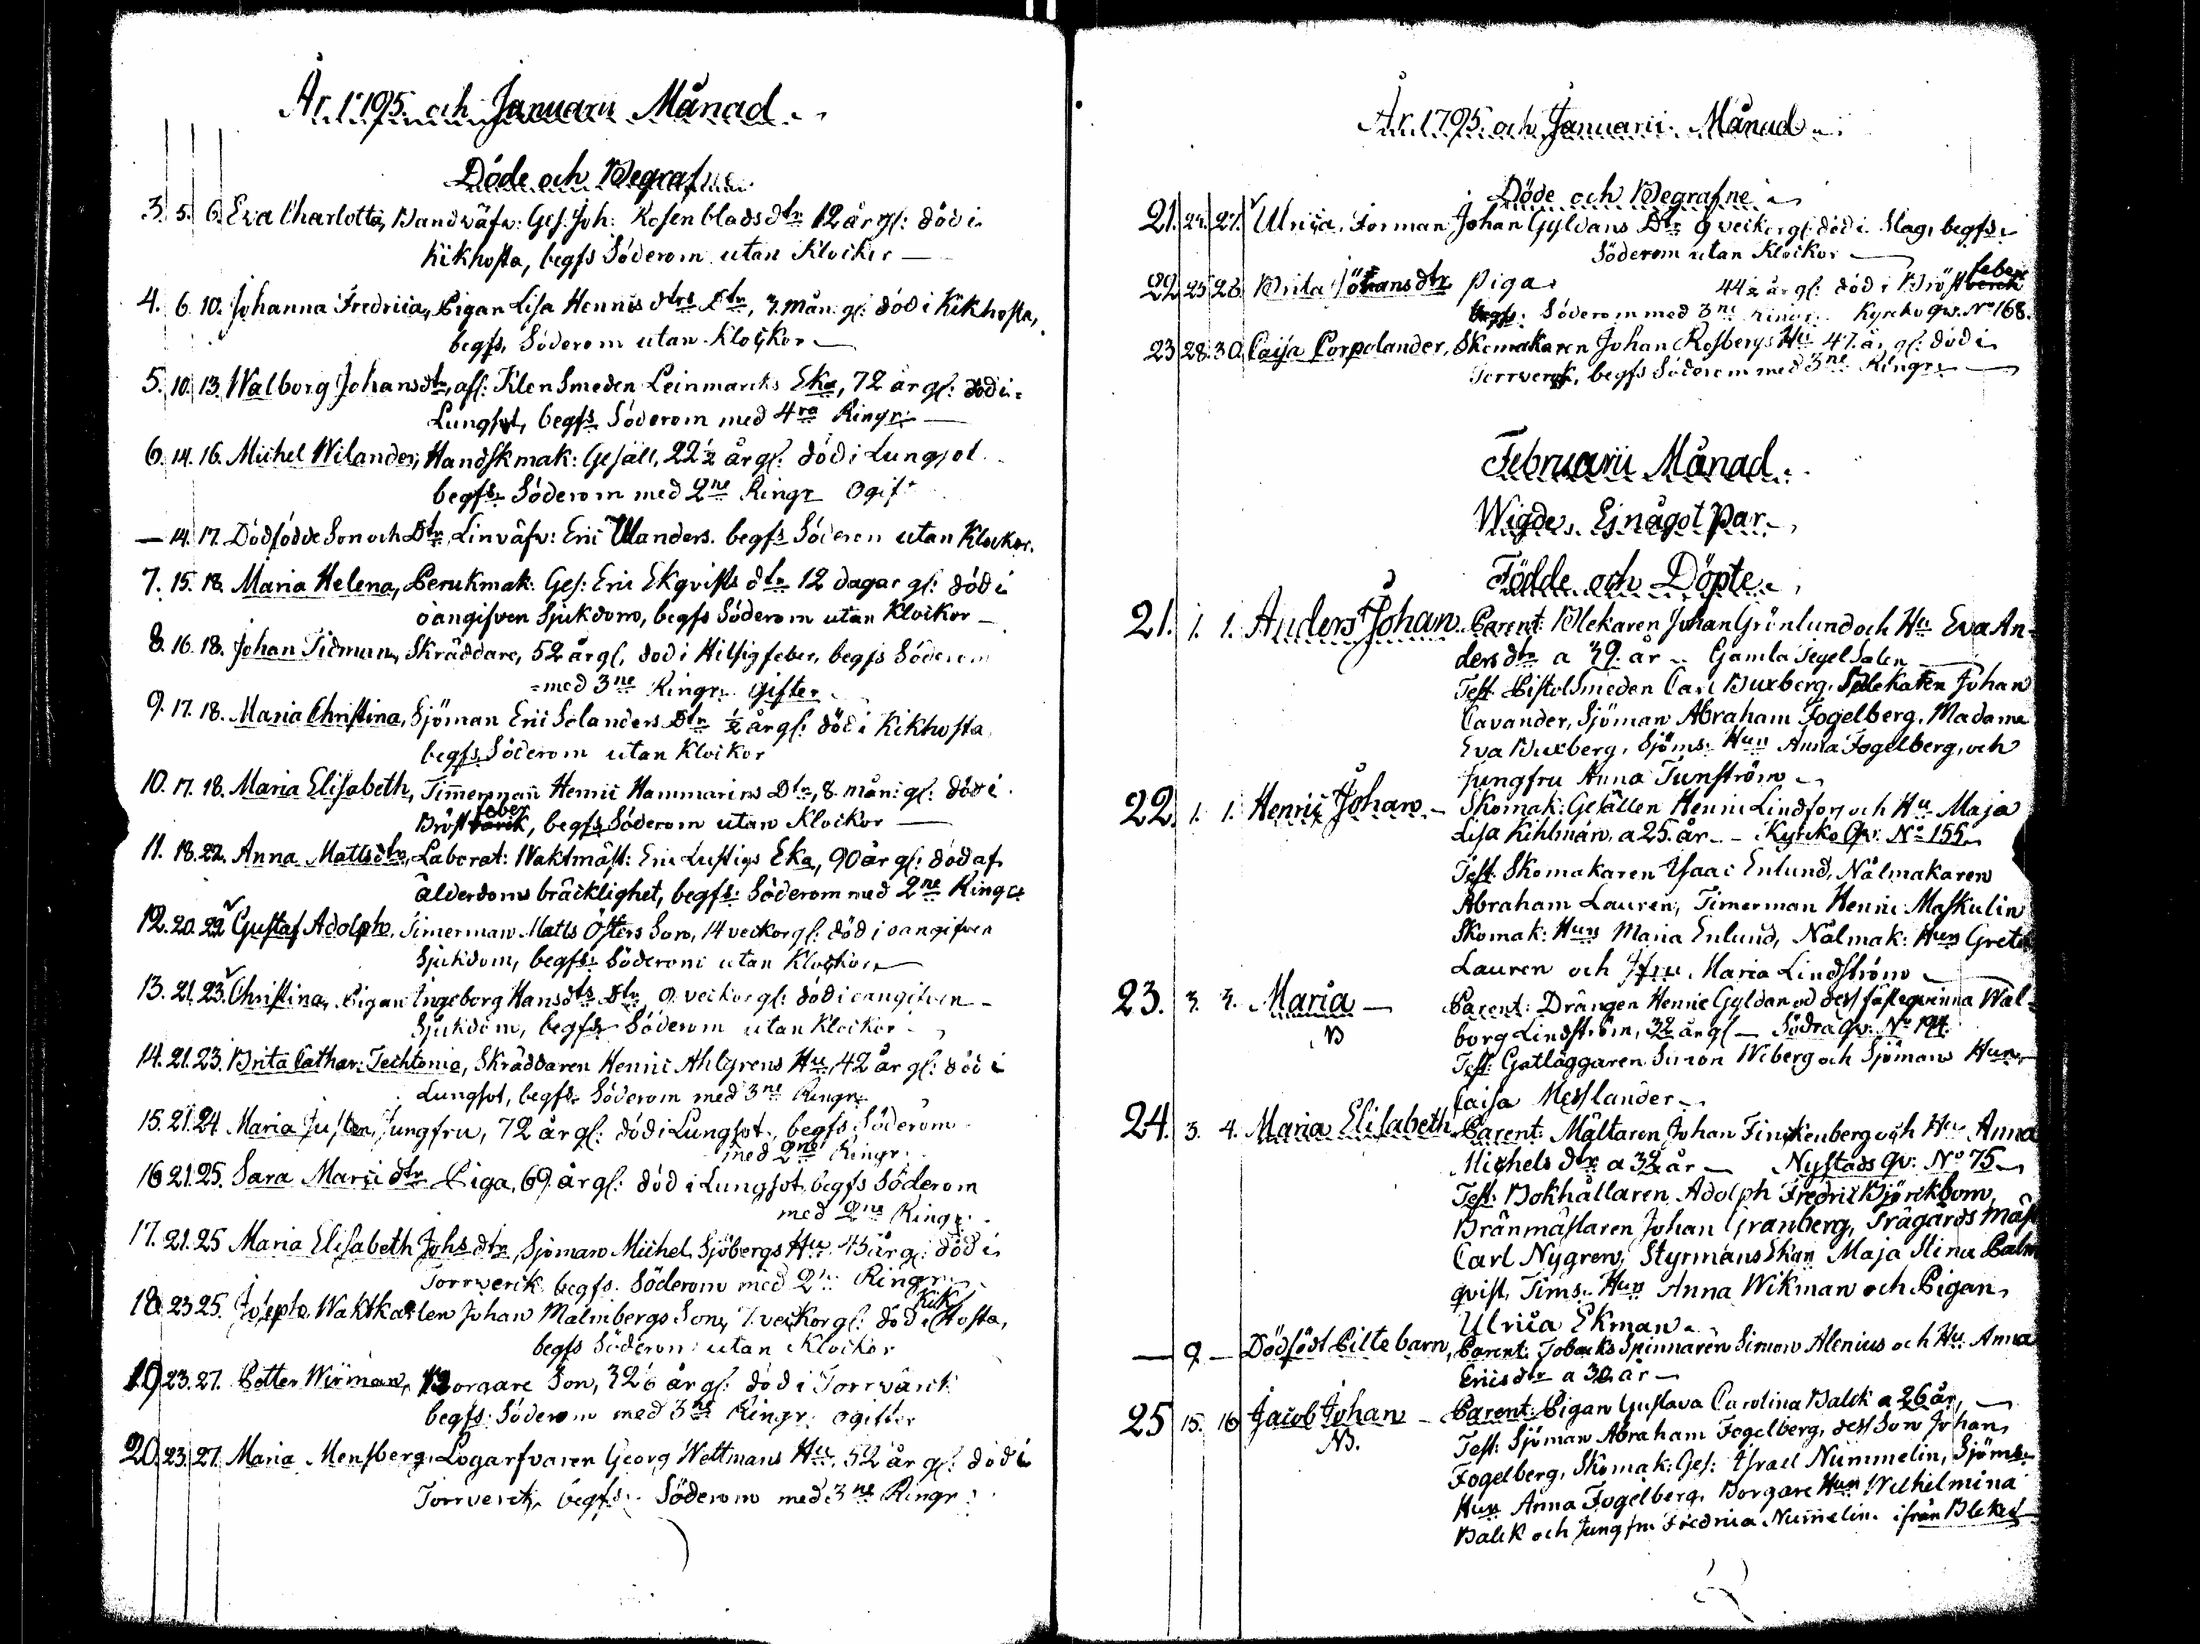 År 1795. och Januarii Månad.
Döde och Begrafne
3. 5. 6. Eva Charlotta, Bandväfv: Ges: Joh: Rosenblads dtr 12 år gl: död i
Kikhosta, begfs Söderom utan Klockor —
4. 6. 10. Johanna Fredrica, Pigan Lisa Hennis dtrs Dtr, 3. mån. gl: död i Kikhosta,
begfs, Söderom utan Klockor —
5. 10. 13. Walborg Johansdtr, afl: KlenSmeden Leinmarcks Eka, 72 år gl: död i
Lungsot, begfs Söderom med 4ra Ringr: —
6. 14. 16. Michel Wilander, Handskmak: Gesäll, 22½ år gl: död i Lungsot
begfs Söderom med 2ne Ringr Ogift
— 14. 17. Dödfödde Son och Dtr, Linväfv: Eric Ulanders. begfs Söderom utan Klockor.
7. 15. 18. Maria Helena, Perukmak: Ges: Eric Ekqvists dtr 12 dagar gl: död i
oangifven Sjukdom, begfs Söderom utan Klockor —
8. 16. 18. Johan Tidman, Skräddare, 52 år gl, död i Hitsigfeber, begfs Söderom
med 3ne Ringr. Gifter
9. 17. 18. Maria Christina, Sjöman Eric Solanders Dtr ½ år gl: död i Kikhosta
begfs Söderom utan Klockor
10. 17. 18. Maria Elisabeth, Timerman Henric Hammarins Dtr, 8. mån: gl: död i
feber
Bröstvärck, begfs Söderom utan Klockor —
11. 18. 22. Anna Mattsdtr, Laborat: Waktmäst: Eric Lustigs Eka, 90 år gl: död af
ålderdoms bräcklighet, begfs: Söderom med 2ne Ringr
12. 20. 22. Gustaf Adolph, Timerman Matts Östers Son, 14 veckor gl: död i oangifven
Sjukdom, begfs: Söderom utan Klockor
13. 21. 23. Christina, Pigan Ingeborg Hansdtrs Dtr, 9 veckor gl: död i oangifven
Sjukdom, begfs Söderom utan Klockor
14. 21. 23. Brita Cathar: Techtonia, Skräddaren Henric Ahlgrens Hu, 42 år gl: död i
Lungsot, begfs Söderom med 3ne Ringr
15. 21. 24 Maria Juslen, Jungfru, 72 år gl: död i Lungsot, begfs Söderom
med 2ne Ringr:
16 21. 25. Sara Marci dtr Piga, 69 år gl: död i Lungsot, begfs Söderom
med 2ne Ringr.
17. 21. 25 Maria Elisabeth Johs dtr, Sjöman Michel Sjöbergs Hu 45 år gl: död i
Torrverck begfs. Söderom med 2ne Ringr
Kik
18 23 25. Joseph, Waktkarlen Johan Malmbergs Son, 7 veckor gl: död i Hosta,
begfs Söderom utan Klockor
19 23. 27. Petter Wirman, Borgare Son, 32 år gl: död i Torrvärck
begfs: Söderom med 3ne Ringr. ogifter
20. 23. 27. Maria Mensberg, Logarfvaren Georg Weltmans Hu, 52 år gl: död i
Torrverck, begfs: Söderom med 3ne Ringr:
År 1795. och Januarii Månad.
Döde och Begrafne
21. 24. 27. Ulrica, Forman Johan Gyldans Dtr 9 veckor gl: död i Slag, begfs
Söderom utan Klockor —
feber
22 25 28 Brita Johans dtr piga 44½ år gl: död i Bröstverck
begfs: Söderom med 3ne Ringr. Kyrcko qv. No 168.
23 28. 30. Caisa Corpolander, Skomakaren Johan Rosbergs Hu 47 år gl: död i
Torrverck, begfs Söderom med 3ne Ringr. —
Februarii Månad.
Wigde. Ej något Par.
Födde och Döpte.
21. 1. 1. Anders Johan Parent: Blekaren Johan Grönlund och Hu Eva An-
ders dtr a 39. år — Gamla Tegel Salen
Test: PistolSmeden Carl Buxberg. Blekaren Johan
Cavander, Sjöman Abraham Fogelberg, Madame
Eva Buxberg, Sjöms: Hun Anna Fogelberg, och
Jungfru Anna Tunström
22. 1. 1. Henric Johan — Skomak: Gesällen Henric Lindfors och Hu Maja
Lisa Kihlman, a 25. år — Kyrcko Qv: No 155
Test: Skomakaren Isaac Enlund, Nålmakaren
Abraham Lauren, Timerman Henric Maskulin
Skomak: Hun Maria Enlund, Nålmak: Hun Greta
Lauren och Jfru. Maria Lindström
23. 3. 3. Maria — Parent: Drängen Henric Gyldan od dess fästeqvinna Wal-
NB borg Lindström, 32 år gl — Södra Qv. No 194.
Test: Gatläggaren Simon Wiberg och Sjöman Hun
Caisa Messlander
24. 3. 4. Maria Elisabeth Parent: Mältaren Johan Finckenberg och Hu Anna
Michels dtr a 32 år — Nystads Qv: No 75
Test: Bokhållaren Adolph Fredric Björckbom,
Bränmästaren Johan Granberg, Trägårds Mäst
Carl Nygren, Styrmans Hun Maja Stina Palm
qvist, Tims: Hun Anna Wikman och Pigan
Ulrica Ekman
— 9 — Dödfödt Piltebarn, Parent: TobacksSpinnaren Simon Alenius och Hu Anna
Ericsdtr a 32 år —
25 15. 16 Jacob Johan — Parent: Pigan Gustava Carolina Balck a 26 år, —
NB. Test: Sjöman Abraham Fogelberg, dess Son Johan
Fogelberg, Skomak: Ges: Israel Nummelin, Sjöms
Hun Anna Fogelberg. Borgare Hun Wilhelmina
Balck och Jungfru Fredrica Nummelin. ifrån Bleket